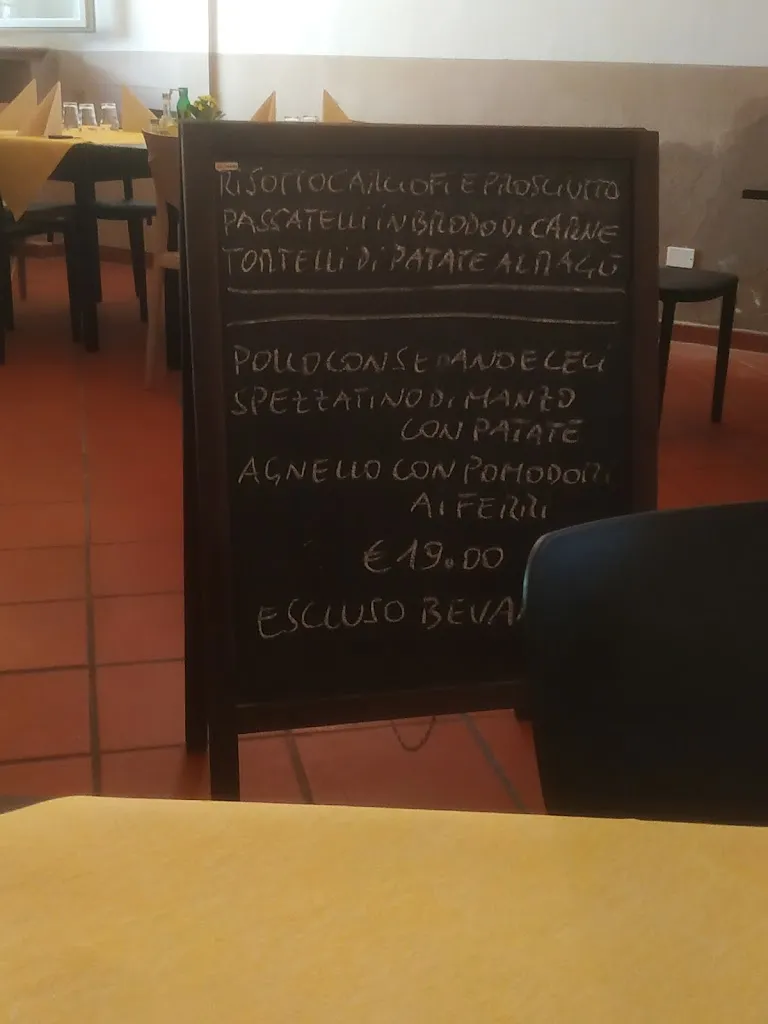 RISOTTO CARCIOFI E PROSCIUTTO
PASSATELLI IN BRODO DI CARNE
TORTELLI DI PATATE AL RAGÙ
POLLO CON SEDANO E CECI
SPEZZATINO DI MANZO
CON PATATE
AGNELLO CON POMODORI
AI FERRI
€ 19.00
ESCLUSO BEVA